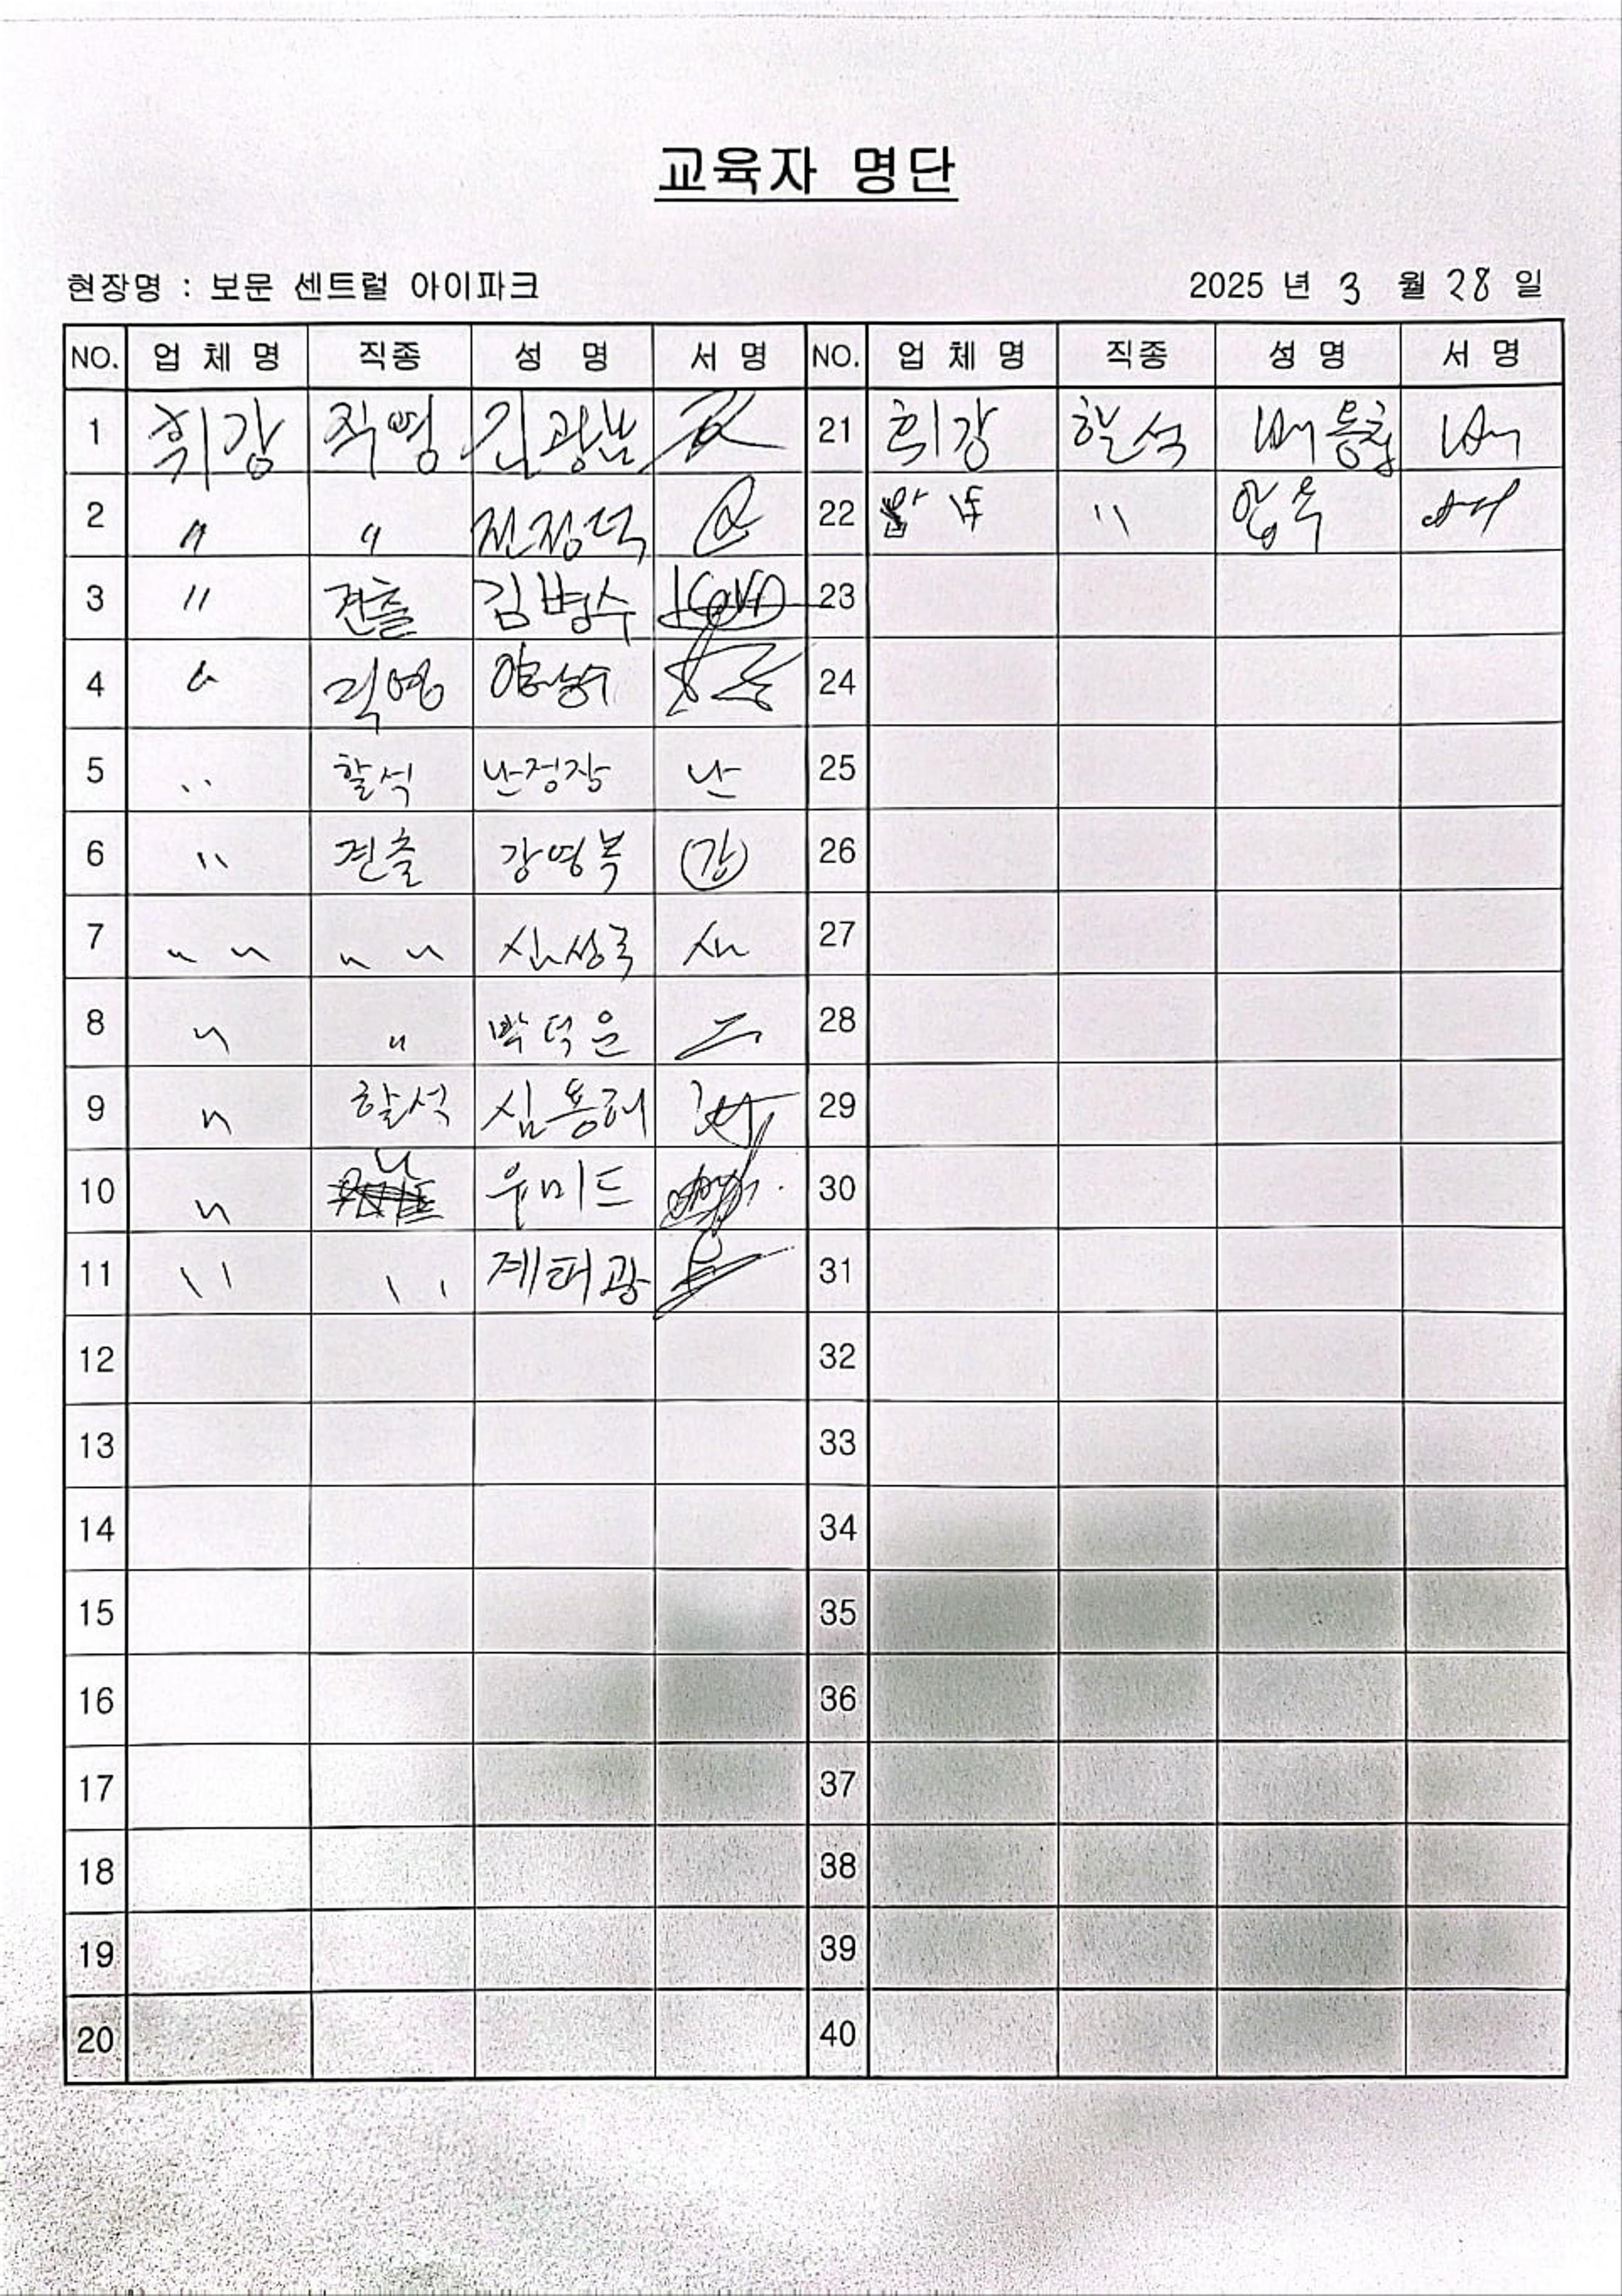 교육자 명단
현장명 : 보문 센트럴 아이파크 2025 년 3 월 28 일
NO. 업체명 직종 성명 서명 NO. 업체명 직종 성명 서명
1 휘강 직영 김광남 21 휘강 할석 배동철 배
2 〃 〃 전정덕 22 〃
3 〃 견출 김병수 23
4 〃 직영 24
5 〃 할석 난정장 난 25
6 〃 견출 강영복 강 26
7 〃 〃 신성국 신 27
8 〃 〃 박덕은 28
9 〃 할석 심용해 29
10 〃 〃 우미드 30
11 〃 〃 계태광 31
12 32
13 33
14 34
15 35
16 36
17 37
18 38
19 39
20 40